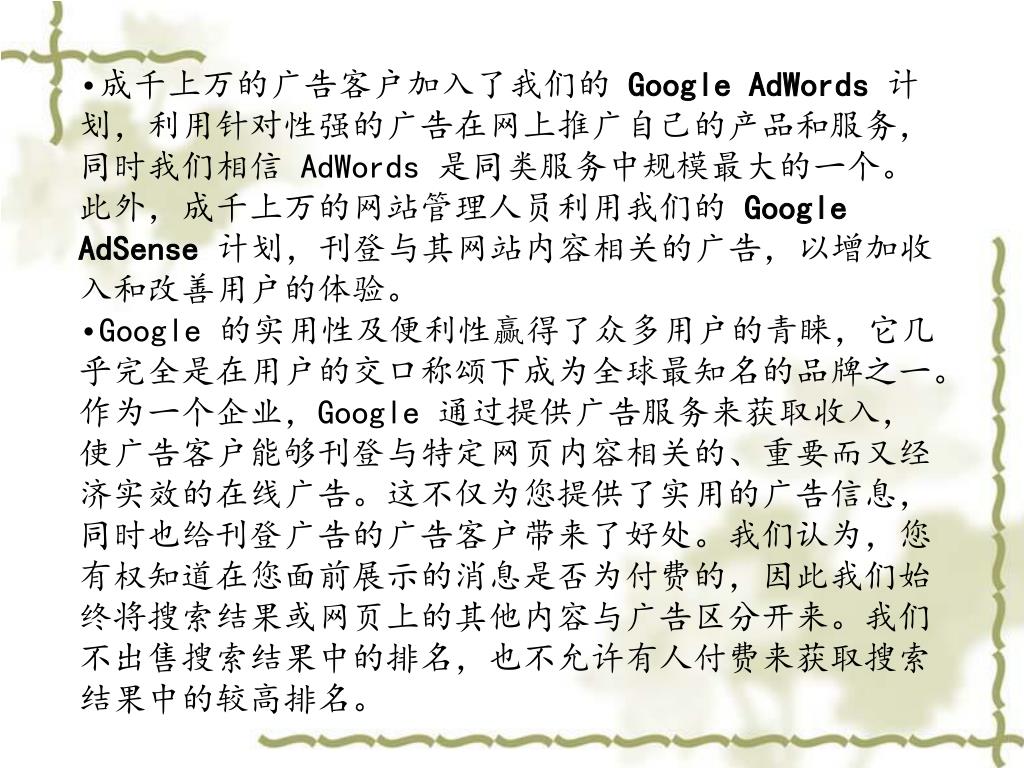 •成千上万的广告客户加入了我们的 Google AdWords 计
划，利用针对性强的广告在网上推广自己的产品和服务，
同时我们相信 AdWords 是同类服务中规模最大的一个。
此外，成千上万的网站管理人员利用我们的 Google
AdSense 计划，刊登与其网站内容相关的广告，以增加收
入和改善用户的体验。
•Google 的实用性及便利性赢得了众多用户的青睐，它几
乎完全是在用户的交口称颂下成为全球最知名的品牌之一。
作为一个企业，Google 通过提供广告服务来获取收入，
使广告客户能够刊登与特定网页内容相关的、重要而又经
济实效的在线广告。这不仅为您提供了实用的广告信息，
同时也给刊登广告的广告客户带来了好处。我们认为，您
有权知道在您面前展示的消息是否为付费的，因此我们始
终将搜索结果或网页上的其他内容与广告区分开来。我们
不出售搜索结果中的排名，也不允许有人付费来获取搜索
结果中的较高排名。